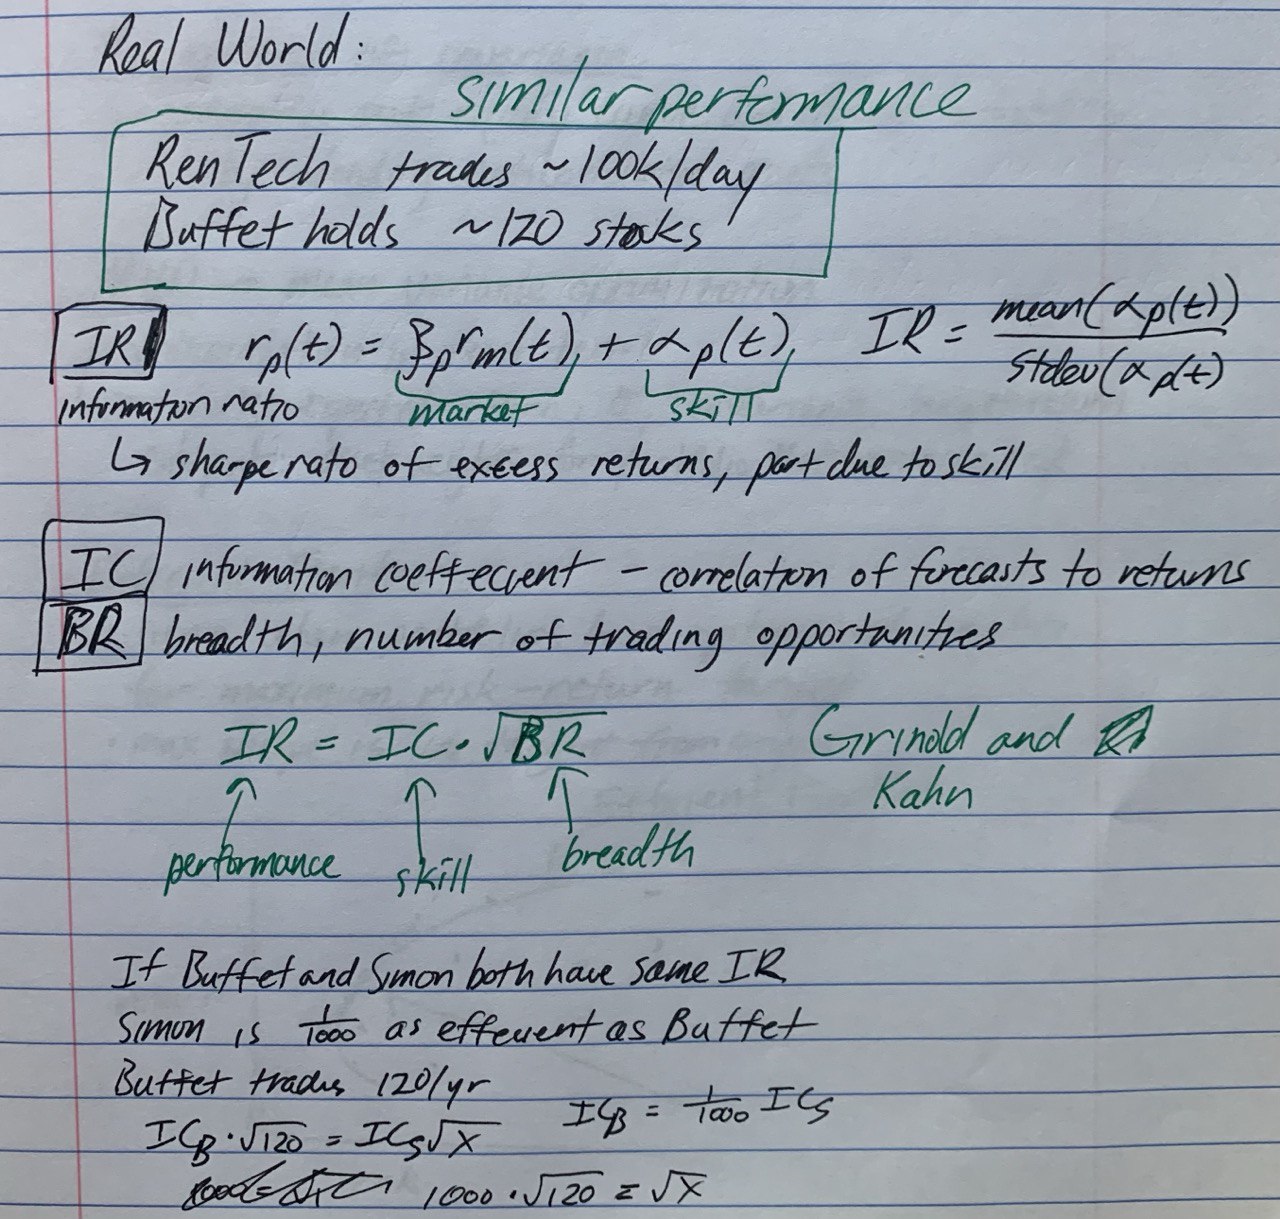 Real World:
similar performance
RenTech trades ~100k/day
Buffet holds ~120 stocks
IR rₚ(t) = βₚrₘ(t) + αₚ(t) IR = mean(αₚ(t)) / stdev(αₚ(t)
information ratio market skill
↳ sharpe rato of excess returns, part due to skill
IC information coeffecient - correlation of forecasts to returns
BR breadth, number of trading opportunities
IR = IC · √BR Grinold and
Kahn
performance skill breadth
If Buffet and Simon both have same IR
Simon is 1/1000 as effecient as Buffet
Buffet trades 120/yr
IC_B · √120 = IC_S √X IC_B = 1/1000 IC_S
1000 · √120 = √X